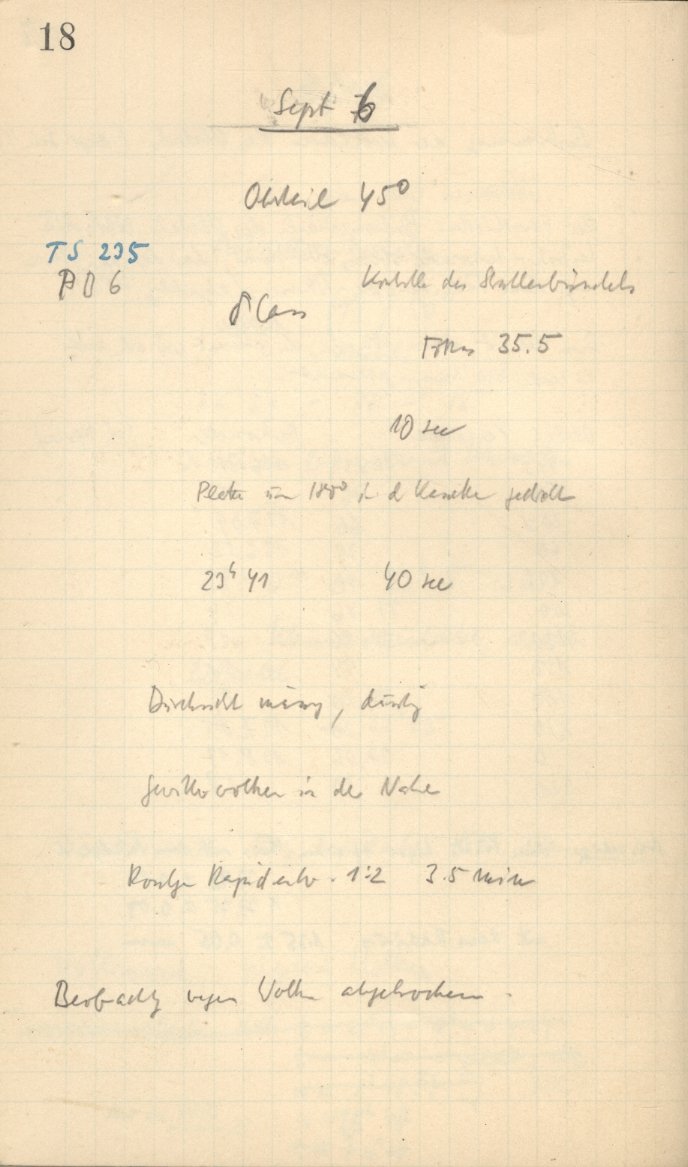 18
Sept 6
Obkeil 45°
TS 235
PD 6
Kontrolle des Strahlenbündels
δ Cass
Fokus 35.5
10 sec
Platte um 180° in d Kassette gedreht
23ʰ 41 40 sec
Durchsicht mässig, dunstig
Gewitterwolken in der Nähe
Rapidentw. 1:2 3.5 min
Beobachtg wegen Wolken abgebrochen.